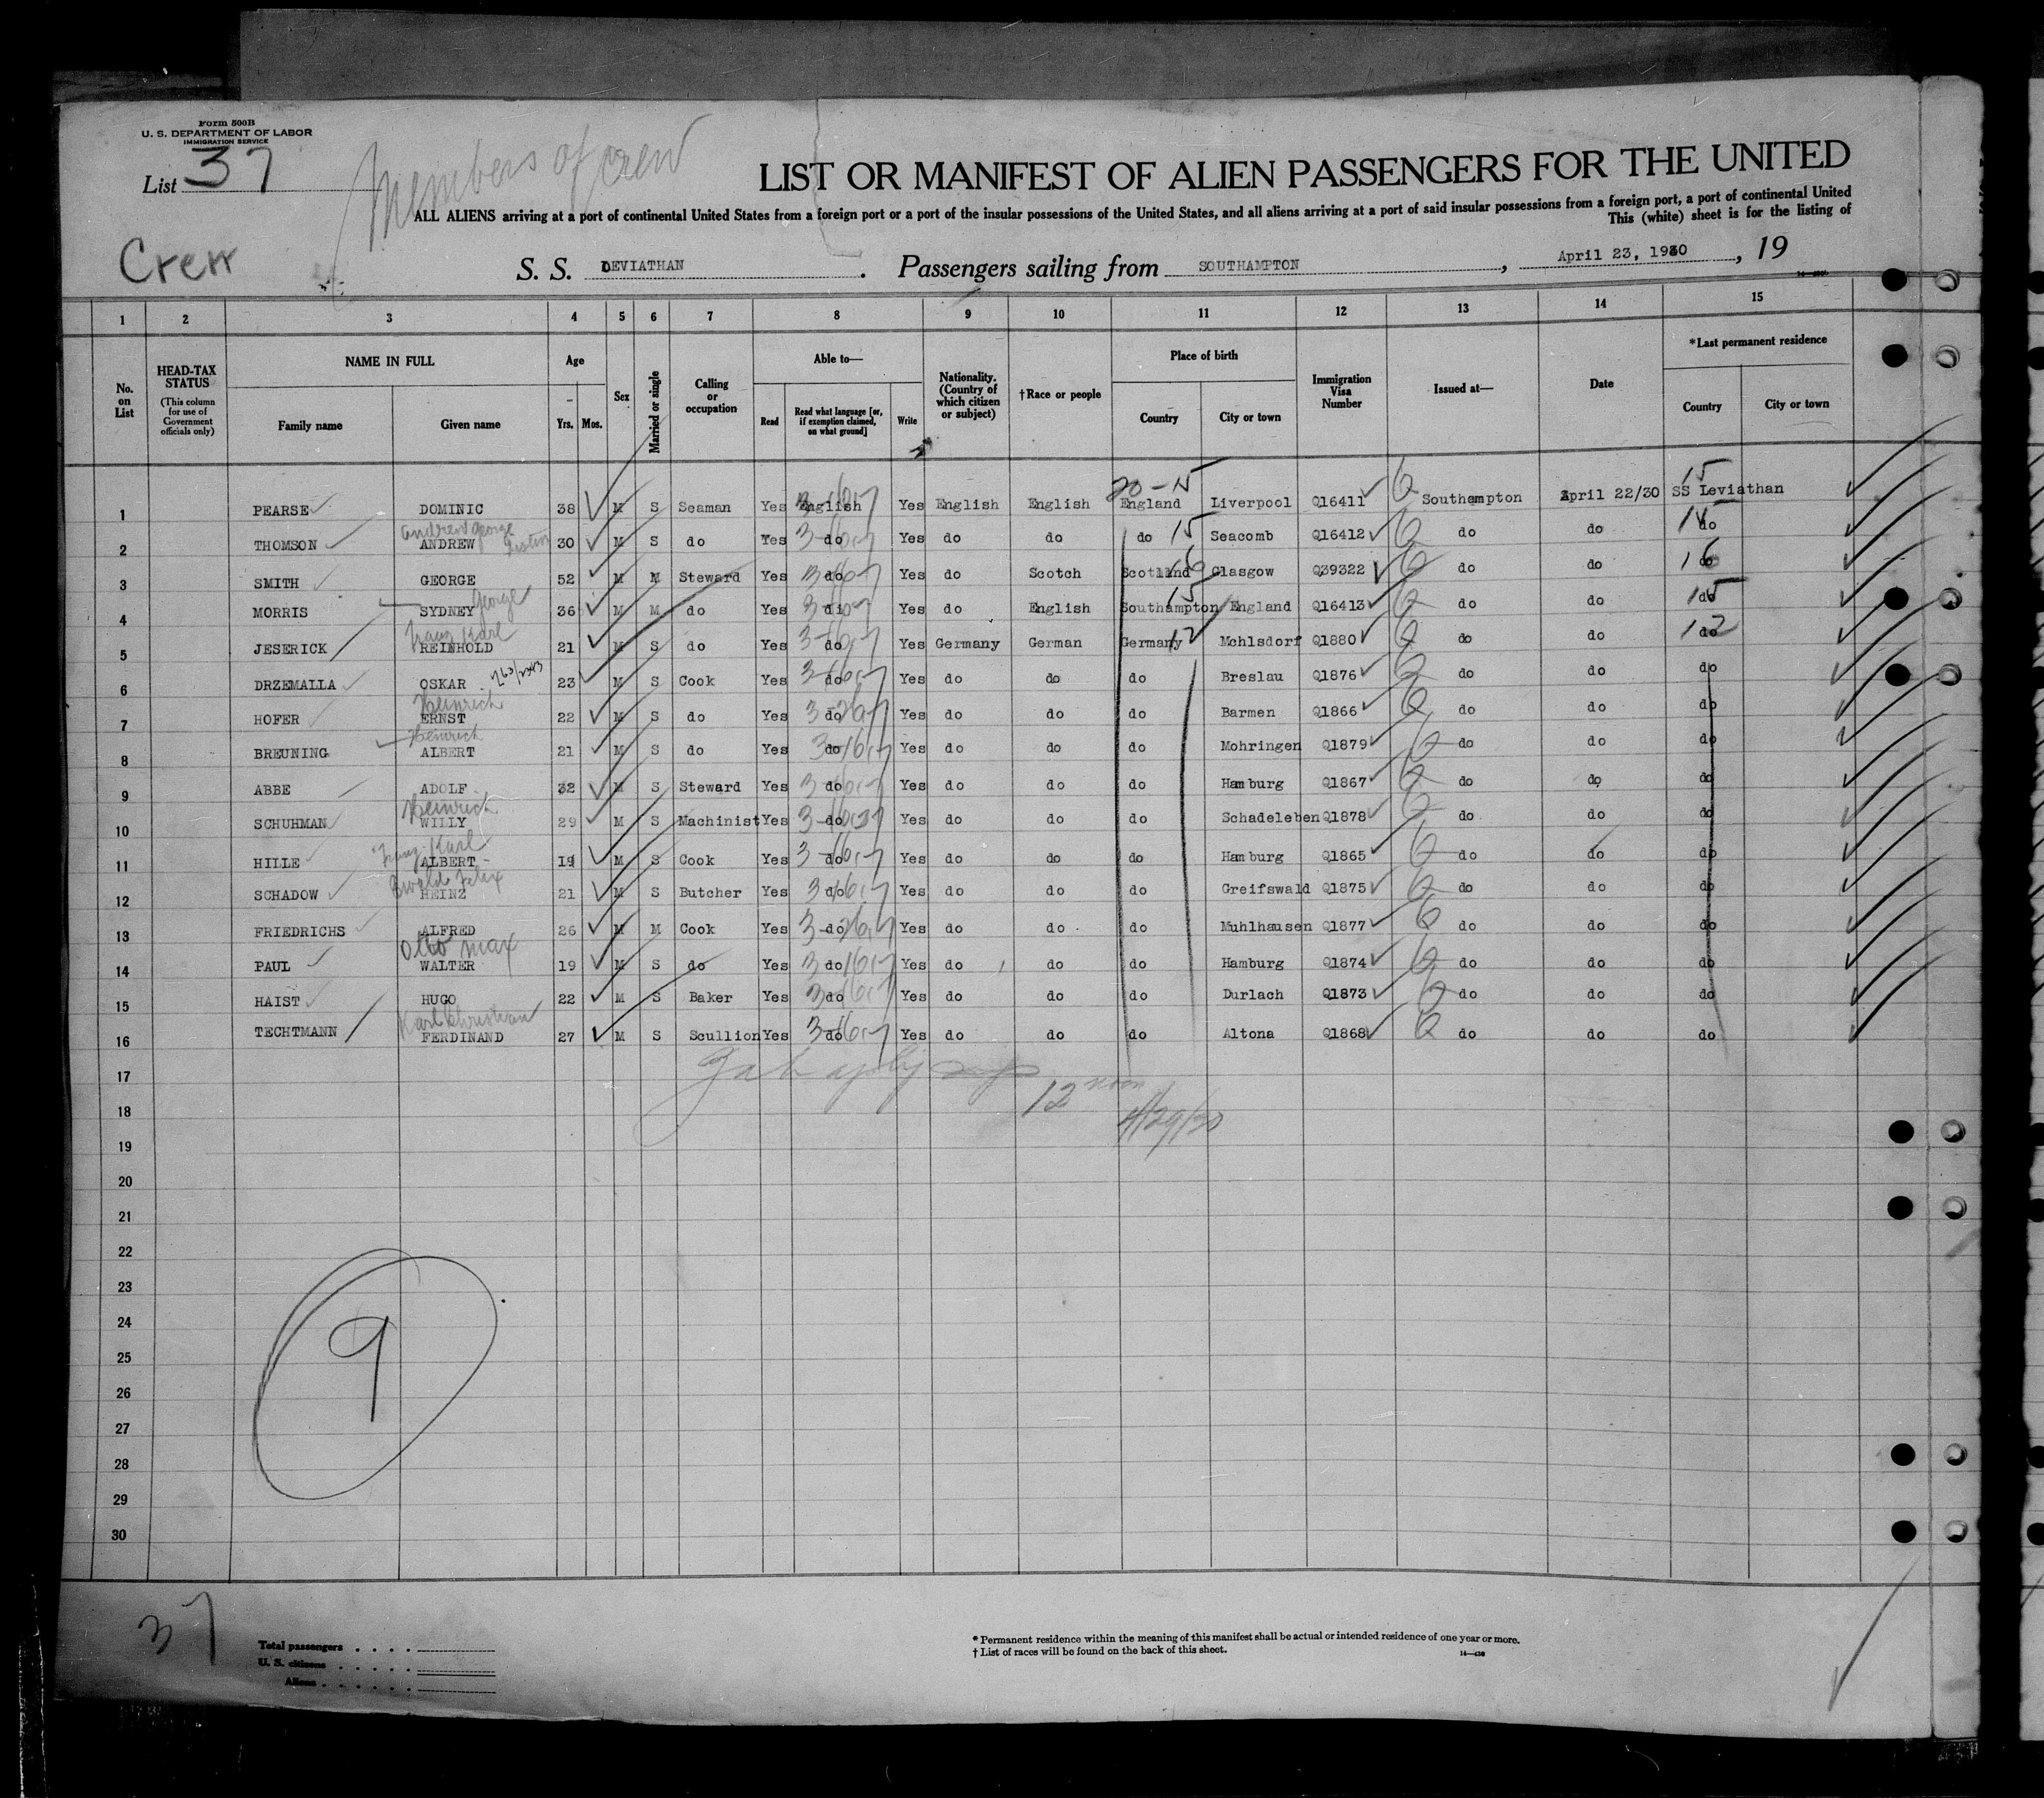 Form 500B
U. S. DEPARTMENT OF LABOR
IMMIGRATION SERVICE
List 37
Members of crew
LIST OR MANIFEST OF ALIEN PASSENGERS FOR THE UNITED
ALL ALIENS arriving at a port of continental United States from a foreign port or a port of the insular possessions of the United States, and all aliens arriving at a port of said insular possessions from a foreign port, a port of continental United
This (white) sheet is for the listing of
Crew
S. S. LEVIATHAN . Passengers sailing from SOUTHAMPTON , April 23, 1930 , 19
1 2 3 4 5 6 7 8 9 10 11 12 13 14 15
No. on List
HEAD-TAX STATUS (This column for use of Government officials only)
NAME IN FULL Family name Given name
Age Yrs. Mos.
Sex
Married or single
Calling or occupation
Able to— Read Read what language [or, if exemption claimed, on what ground] Write
Nationality. (Country of which citizen or subject)
†Race or people
Place of birth Country City or town
Immigration Visa Number
Issued at—
Date
*Last permanent residence Country City or town
20-15 15
1 PEARSE DOMINIC 38 M S Seaman Yes English Yes English English England Liverpool Q16411 Southampton April 22/30 SS Leviathan
Andrew George
2 THOMSON ANDREW 30 M S do Yes do Yes do do do 15 Seacomb Q16412 do do do 15
3 SMITH GEORGE 52 M M Steward Yes do Yes do Scotch Scotland Glasgow Q39322 do do do 16
George
4 MORRIS SYDNEY 36 M M do Yes do Yes do English Southampton England 15 Q16413 do do do 15
Franz Karl
5 JESERICK REINHOLD 21 M S do Yes do Yes Germany German Germany 12 Mehlsdorf Q1880 do do do 12
6 DRZEMALLA OSKAR 23 M S Cook Yes do Yes do do do Breslau Q1876 do do do
Heinrich
7 HOFER ERNST 22 M S do Yes do Yes do do do Barmen Q1866 do do do
Heinrich
8 BREUNING ALBERT 21 M S do Yes do Yes do do do Mohringen Q1879 do do do
9 ABBE ADOLF 32 M S Steward Yes do Yes do do do Hamburg Q1867 do do do
Heinrich
10 SCHUHMAN WILLY 29 M S Machinist Yes do Yes do do do Schadeleben Q1878 do do do
Franz Karl
11 HILLE ALBERT 19 M S Cook Yes do Yes do do do Hamburg Q1865 do do do
Ewald Felix
12 SCHADOW HEINZ 21 M S Butcher Yes do Yes do do do Greifswald Q1875 do do do
13 FRIEDRICHS ALFRED 26 M M Cook Yes do Yes do do do Muhlhausen Q1877 do do do
Otto Max
14 PAUL WALTER 19 M S do Yes do Yes do do do Hamburg Q1874 do do do
15 HAIST HUGO 22 M S Baker Yes do Yes do do do Durlach Q1873 do do do
Karl Christian
16 TECHTMANN FERDINAND 27 M S Scullion Yes do Yes do do do Altona Q1868 do do do
17
12 noon
18
4/29/30
19
20
21
22
23
24
25
26
27
28
29
30
9
37
Total passengers . . . .
U. S. citizens . . . . .
Aliens . . . . . .
* Permanent residence within the meaning of this manifest shall be actual or intended residence of one year or more.
† List of races will be found on the back of this sheet.